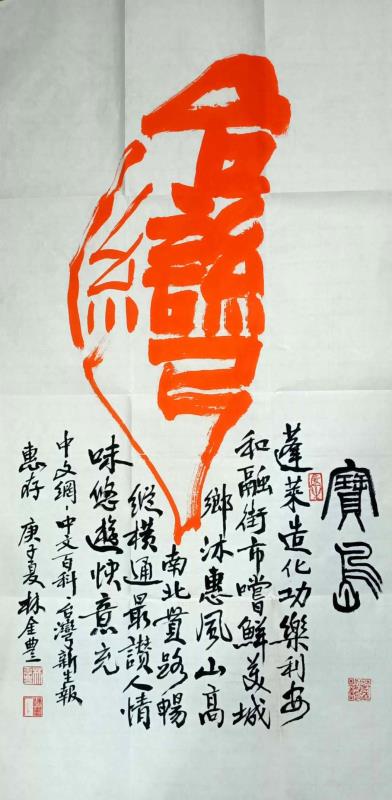 台灣
寶島
蓬萊造化功樂利安
和融街市嚐鮮美城
鄉沐惠風山高
南北貫路暢
縱橫通最讚人情
味悠遊快意充
中文網·中文百科 台灣新生報
惠存 庚子夏 林金豐